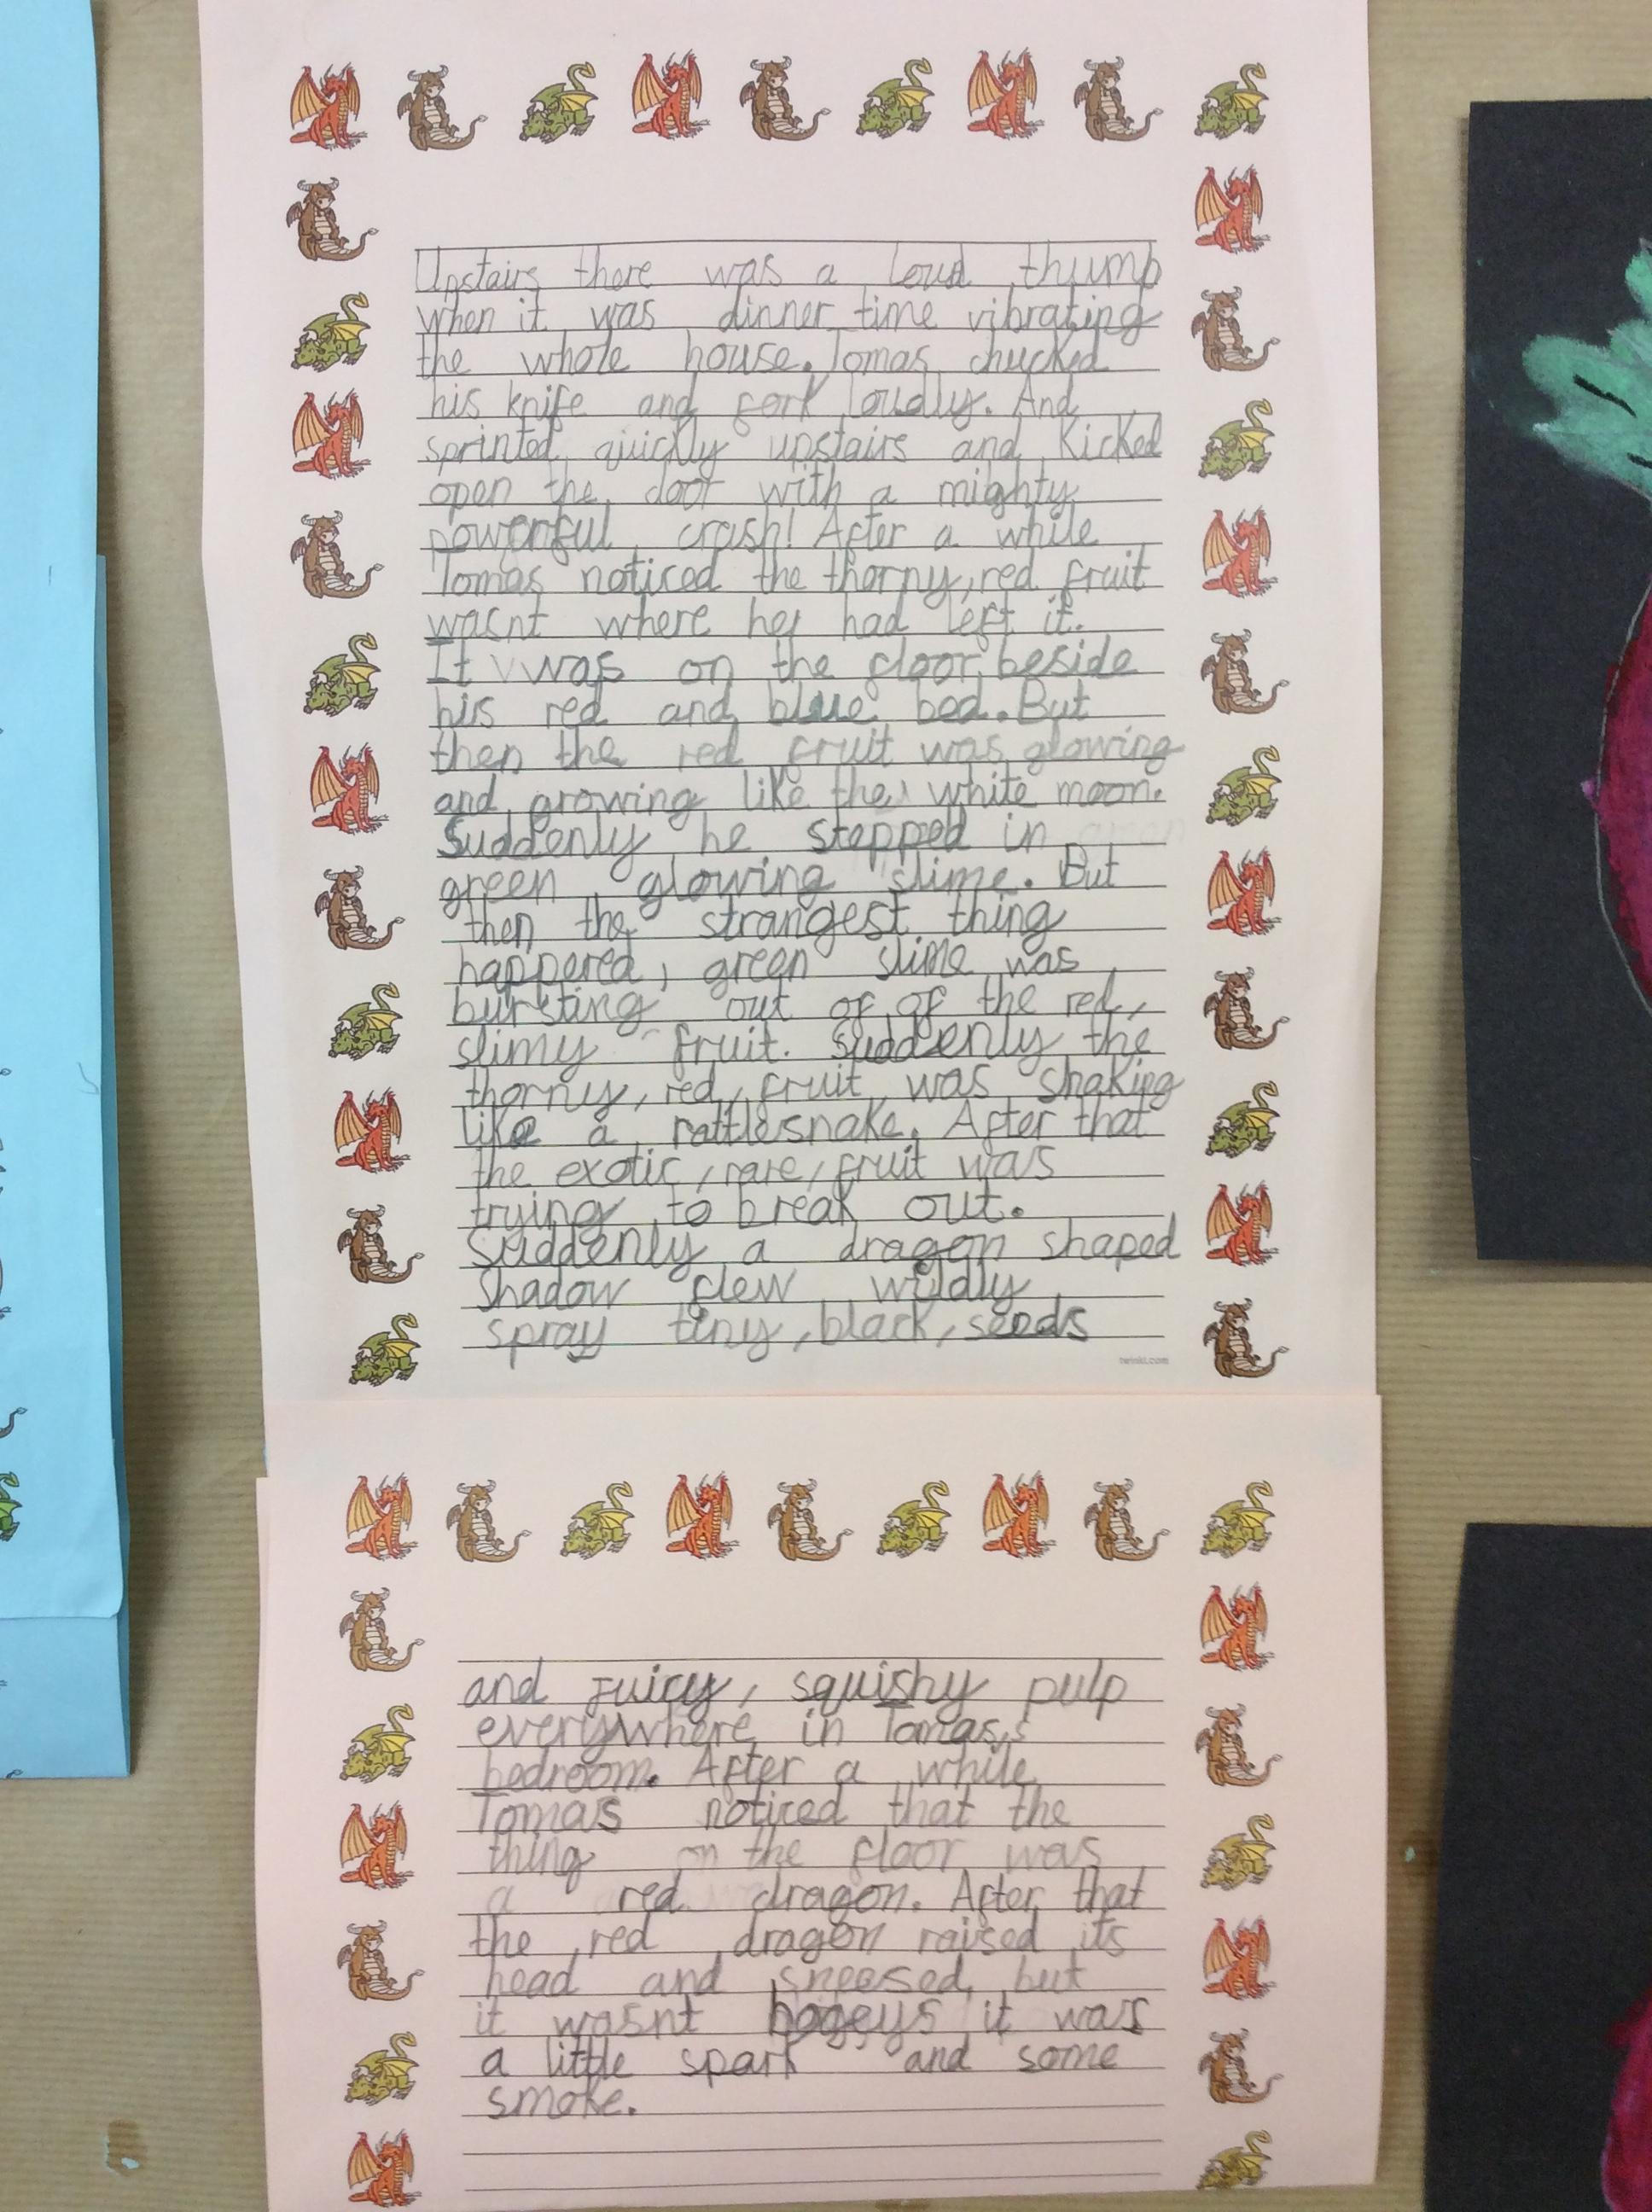 Upstairs there was a loud thump
when it was dinner time vibrating
the whole house. Tomas chucked
his knife and fork loudly. And
sprinted quickly upstairs and kicked
open the door with a mighty
powerful crash! After a while
Tomas noticed the thorny, red fruit
wasnt where he had left it.
It was on the floor beside
his red and blue bed. But
then the red fruit was glowing
and growing like the white moon.
Suddenly he stepped in
green glowing slime. But
then the strangest thing
happened, green slime was
bursting out of of the red,
slimy fruit. Suddenly the
thorny, red, fruit was shaking
like a rattlesnake. After that
the exotic, rare, fruit was
trying to break out.
Suddenly a dragon shaped
shadow flew wildly
spray tiny, black, seeds
twinkl.com
and juicy, squishy pulp
everywhere in Tomas,s
bedroom. After a while
Tomas noticed that the
thing on the floor was
a red dragon. After that
the red dragon raised its
head and sneesed, but
it wasnt bogeys it was
a little spark and some
smoke.